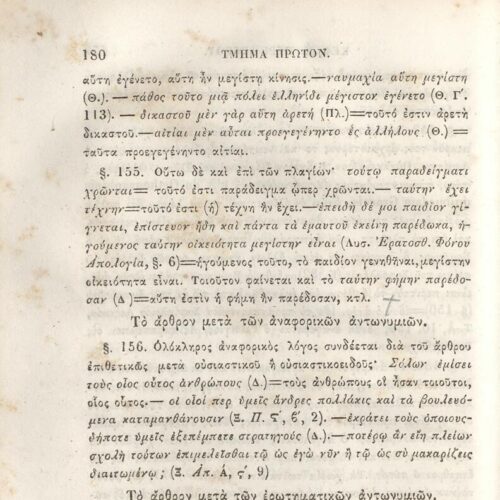 180 ΤΜΗΜΑ ΠΡΩΤΟΝ.
αὕτη ἐγένετο, αὕτη ἦν μεγίστη κίνησις.—ναυμαχία αὕτη μεγίστη
(Θ.). — πάθος τοῦτο μιᾷ πόλει ἑλληνίδι μέγιστον ἐγένετο (Θ. Γ΄.
113). — δικαστοῦ μὲν γὰρ αὕτη ἀρετή (Πλ.)=τοῦτό ἐστιν ἀρετὴ
δικαστοῦ.—αἰτίαι μὲν αὗται προεγεγένηντο ἐς ἀλλήλους (Θ.) =
ταῦτα προεγεγένηντο αἰτίαι.
§. 155. Οὕτω δὲ καὶ ἐπὶ τῶν πλαγίων· τούτῳ παραδείγματι
χρῶνται= τοῦτό ἐστι παράδειγμα ᾧπερ χρῶνται.— ταύτην ἔχει
τέχνην=τοῦτό ἐστι (ἡ) τέχνη ἣν ἔχει.— ἐπειδὴ δέ μοι παιδίον γί-
γνεται, ἐπίστευον ἤδη καὶ πάντα τὰ ἐμαυτοῦ ἐκείνῃ παρέδωκα, ἡ-
γούμενος ταύτην οἰκειότητα μεγίστην εἶναι (Λυσ. Ἐρατοσθ. Φόνου
Ἀπολογία, §. 6)=ἡγούμενος τοῦτο, τὸ παιδίον γενηθῆναι, μεγίστην
οἰκειότητα εἶναι. Τοιοῦτον φαίνεται καὶ τὸ ταύτην φήμην παρέδο-
σαν (Δ)=αὕτη ἐστὶν ἡ φήμη ἣν παρέδοσαν, κτλ.
Τὸ ἄρθρον μετὰ τῶν ἀναφορικῶν ἀντωνυμιῶν.
§. 156. Ὁλόκληρος ἀναφορικὸς λόγος συνδέεται διὰ τοῦ ἄρθρου
ἐπιθετικῶς μετὰ οὐσιαστικοῦ ἢ οὐσιαστικοειδοῦς· Σόλων ἐμίσει
τοὺς οἷος οὗτος ἀνθρώπους (Δ.)=τοὺς ἀνθρώπους οἳ ἦσαν τοιοῦτοι,
οἷος οὗτος.— οἱ οἷοι περ ὑμεῖς ἄνδρες πολλάκις καὶ τὰ βουλευό-
μενα καταμανθάνουσιν (Ξ. Π. ϛ΄, β΄, 2). — ἐκράτει τοὺς ὁποιους-
δήποτε ὑμεῖς ἐξεπέμπετε στρατηγούς (Δ.).— ποτέρῳ ἄν τῃ πλείων
σχολὴ τούτων ἐπιμελεῖσθαι τῷ ὡς ἐγὼ νῦν ἢ τῷ ὡς σὺ μακαρίζεις
διαιτωμένῳ; (Ξ. Ἀπ. Ἀ, ϛ΄, 9)
Τὸ ἄρθρον μετὰ τῶν ἐρωτηματικῶν ἀντωνυμιῶν.